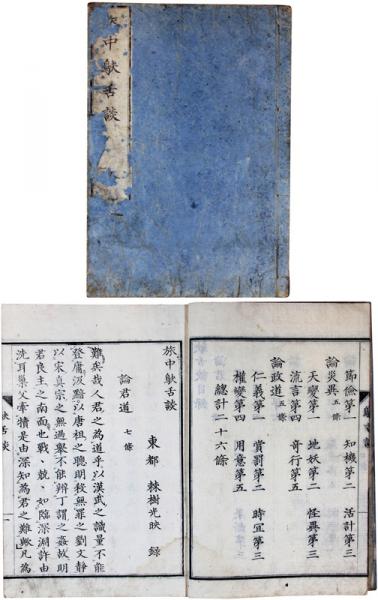 中鴃舌談
一
節儉第一 知機第二 活計第三
論災異 五條
天變第一 地妖第二 怪異第三
流言第四 奇行第五
論政道 五條
仁義第一 賞罰第二 時宜第三
權變第四 用意第五
總計二十六條
旅中鴃舌談
東都 樹光映 錄
論君道 七條
難矣哉人君之為道乎以漢武之識量不能
登庸汲黯以唐祖之聰明殺無罪之劉文靜
以宋真宗之無過舉不能辨丁謂之姦故明
君良主之南面也戰〻兢〻如臨深淵許由
洗耳巢父牽犢是由深知為君之難歟凡為
鴃舌談